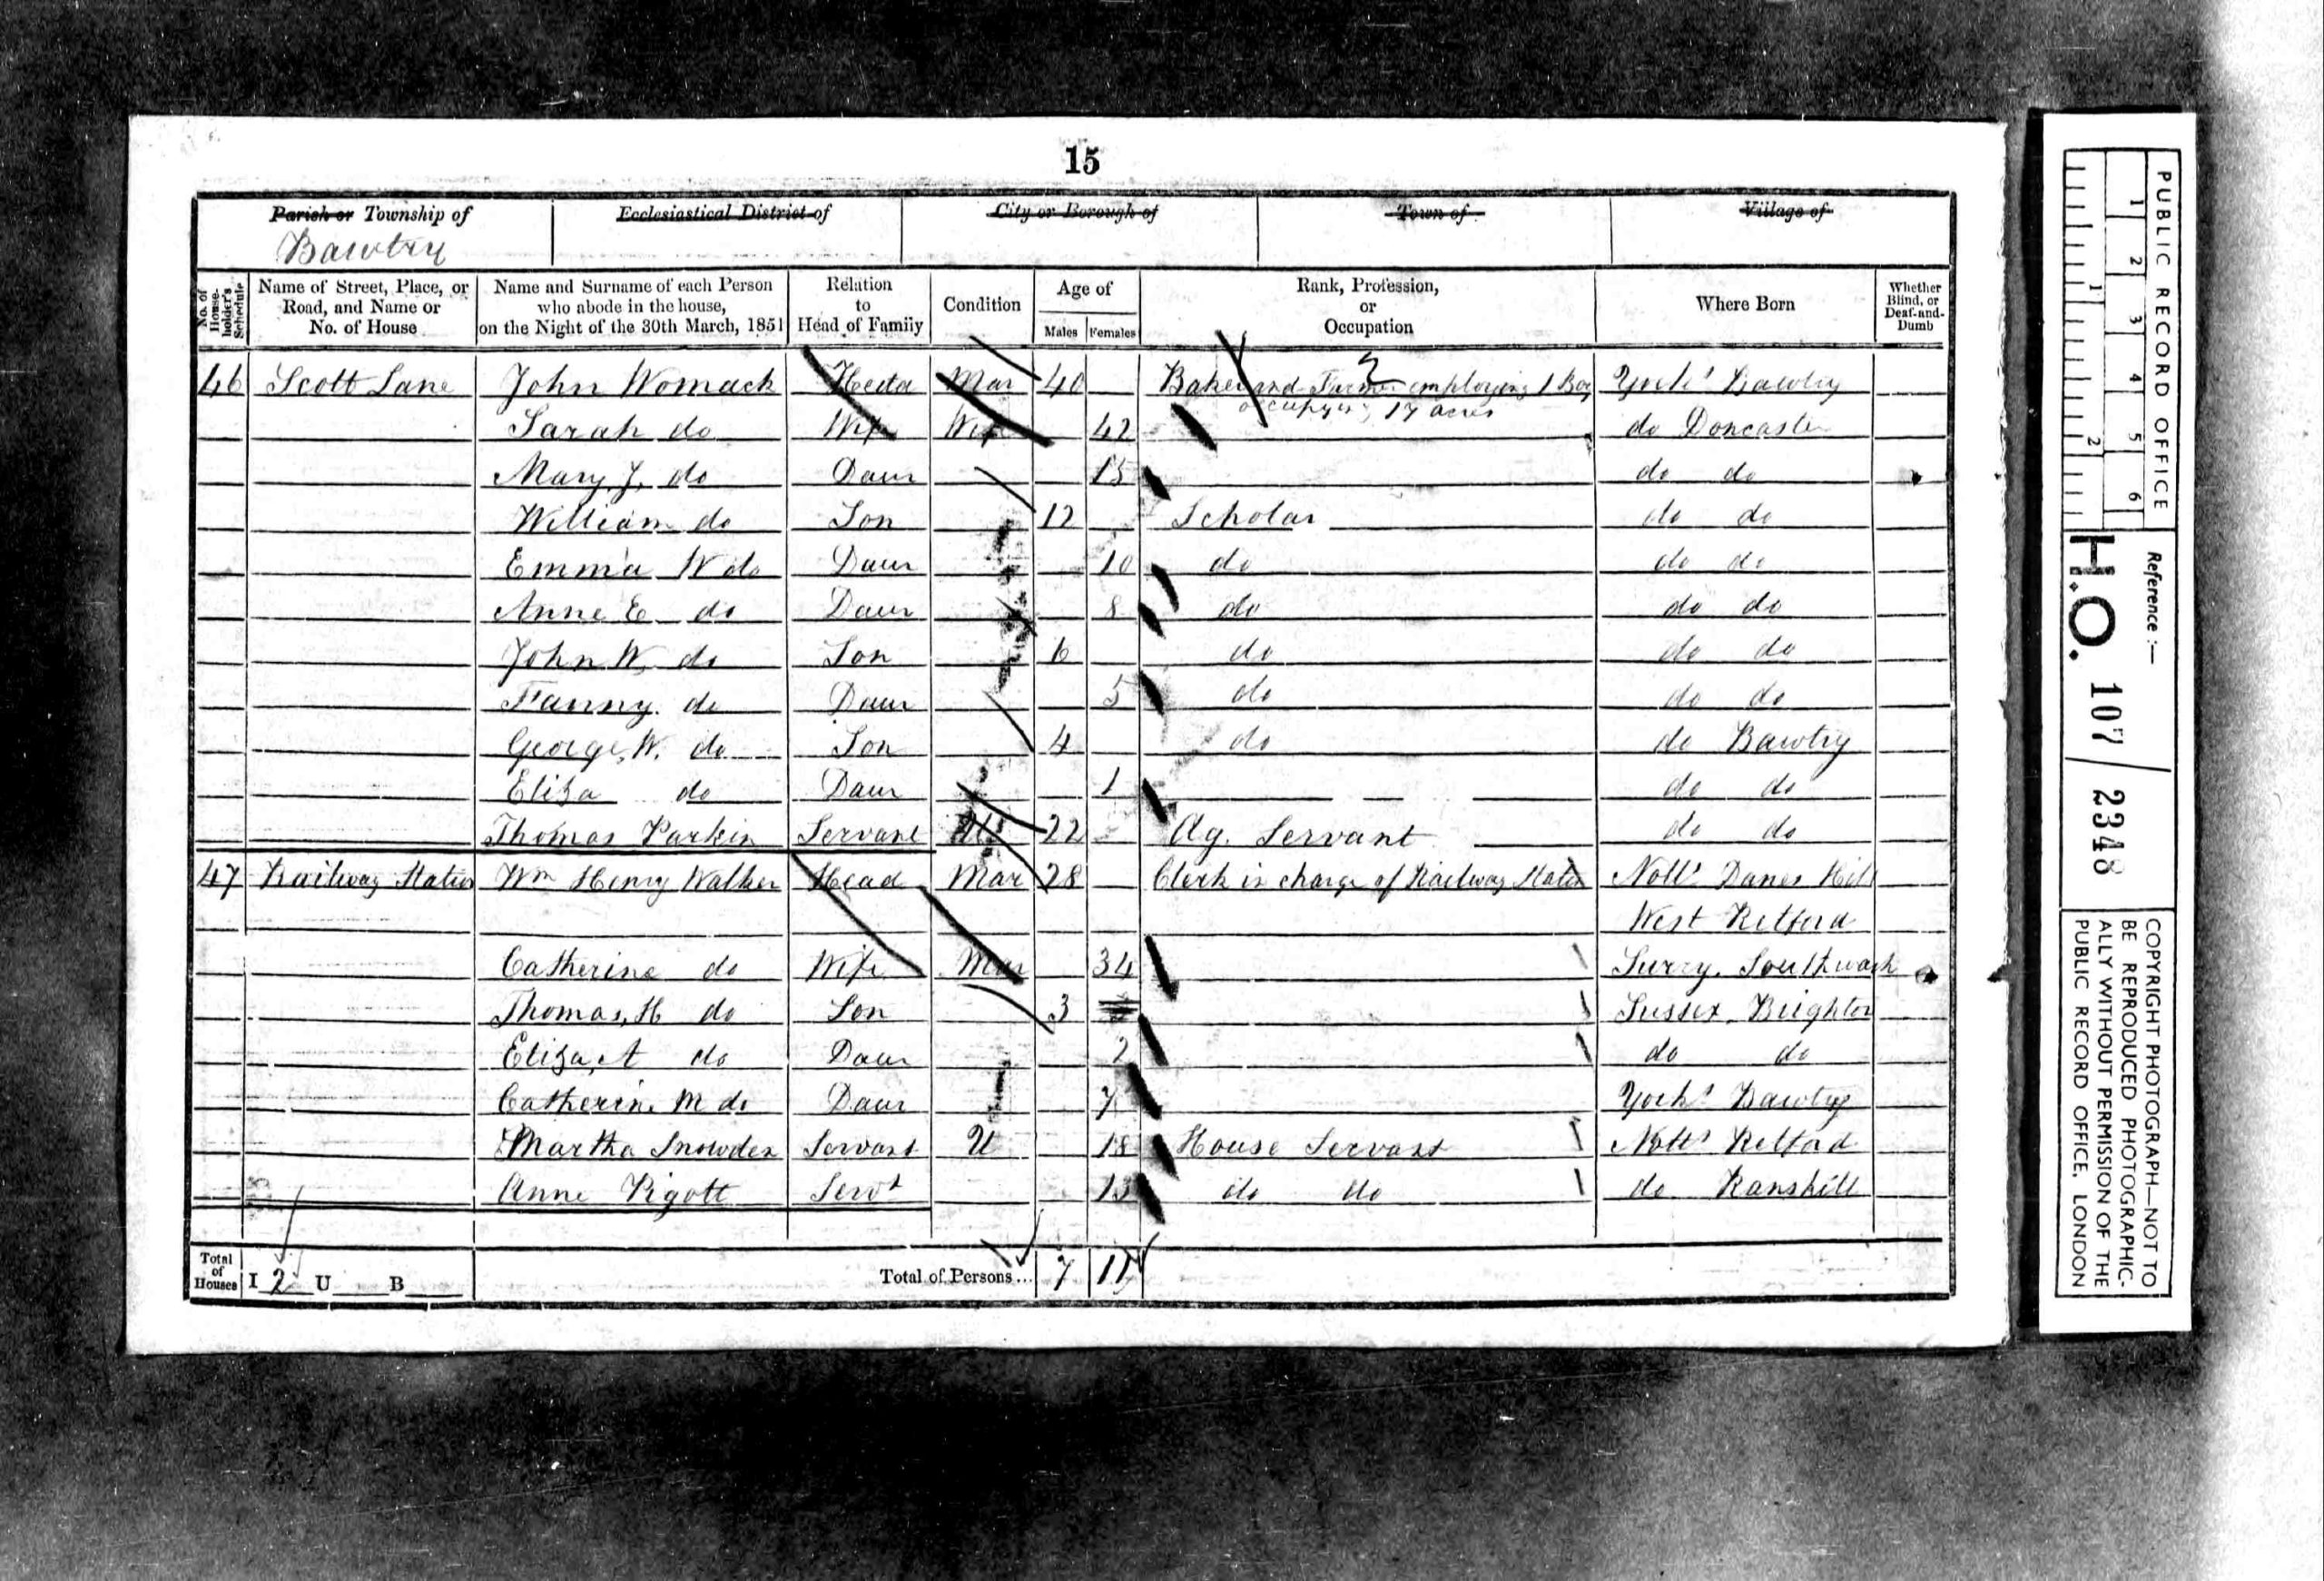 15
Parish or Township of
Bawtry
Ecclesiastical District of
City or Borough of
Town of
Village of
No. of House-holder's Schedule
Name of Street, Place, or Road, and Name or No. of House
Name and Surname of each Person who abode in the house, on the Night of the 30th March, 1851
Relation to Head of Family
Condition
Age of
Males Females
Rank, Profession, or Occupation
Where Born
Whether Blind, or Deaf-and-Dumb
46 Scott Lane John Womack Head Mar 40 Baker and Farmer employing 1 Boy Yorks Bawtry
occupying 17 acres
Sarah do Wife 42 do Doncaster
Mary J. do Daur 15 do do
William do Son 12 Scholar do do
Emma W do Daur 10 do do do
Anne E do Daur 8 do do do
John W. do Son 6 do do do
Fanny do Daur 5 do do do
George W. do Son 4 do do Bawtry
Eliza do Daur 1 do do
Thomas Parkin Servant 22 Ag. Servant do do
47 Railway Station Wm Henry Walker Head Mar 28 Clerk in charge of Railway Station Notts Danes Hill
West Retford
Catherine do Wife Mar 34 Surry. Southwark
Thomas, H do Son 3 Sussex Brighton
Eliza, A do Daur 2 do do
Catherine M do Daur Yorks Bawtry
Martha Snowden Servant U 18 House Servant Notts Retford
Anne Pigott Servt 13 do do do Ranskill
Total of Houses I 2 U B
Total of Persons... 7 11
PUBLIC RECORD OFFICE
1 2 3 4 5 6
1 2
Reference :—
H.O. 107/2348
COPYRIGHT PHOTOGRAPH—NOT TO
BE REPRODUCED PHOTOGRAPHIC-
ALLY WITHOUT PERMISSION OF THE
PUBLIC RECORD OFFICE, LONDON